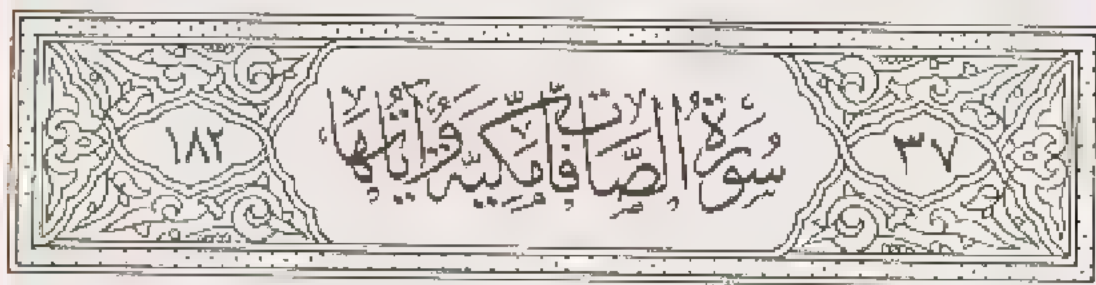 ٣٧ سُورَةُ الصَّافَّاتِ مَكِّيَّة وَآيَاتُهَا ١٨٢